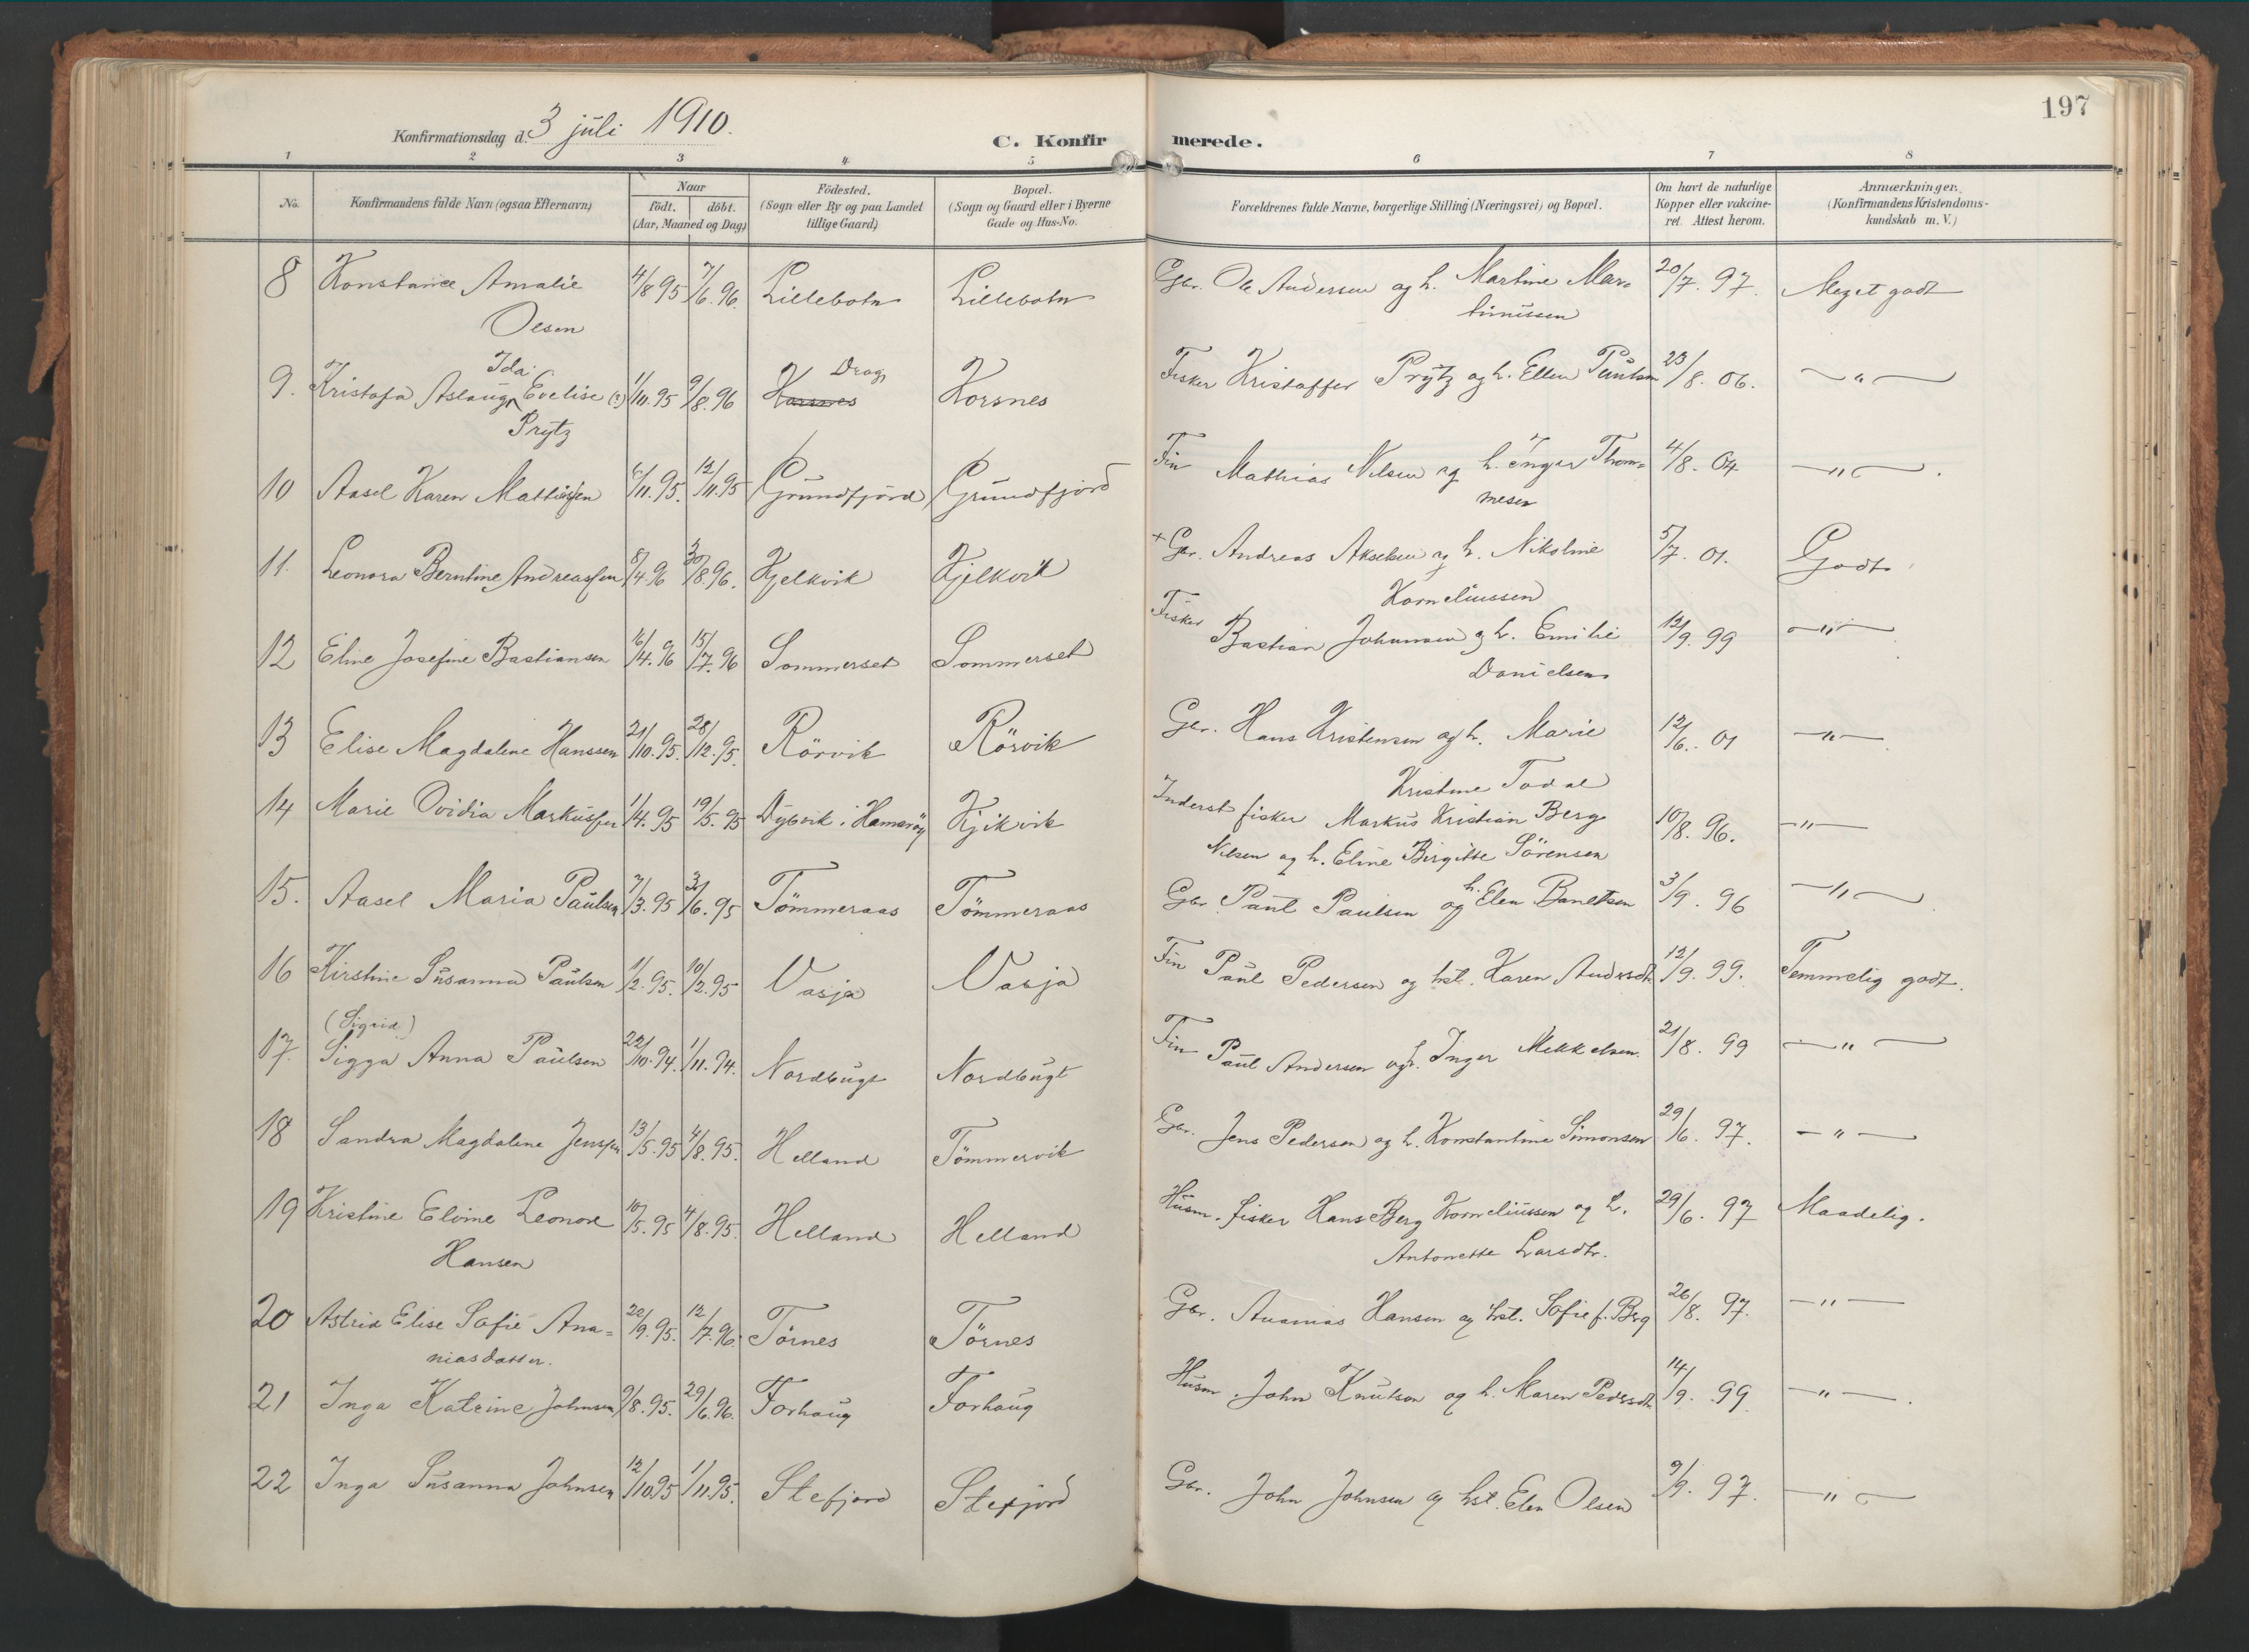 197
Konfirmationsdag d. 3 juli 1910.
C. Konfirmerede.
1 2 3 4 5 6 7 8
No. | Konfirmandens fulde Navn (ogsaa Efternavn) | Naar födt. döbt. (Aar, Maaned og Dag) | Födested. (Sogn eller By og paa Landet tillige Gaard) | Bopæl. (Sogn og Gaard eller i Byerne Gade og Hus-No. | Forældrenes fulde Navne, borgerlige Stilling (Næringsvei) og Bopæl. | Om havt de naturlige Kopper eller vakcineret. Attest herom. | Anmærkninger. (Konfirmandens Kristendomskundskab m. V.)
8 Konstance Amalie 4/8 95 7/6. 96. Lillebotn Lillebotn Gbr. Ole Andersen og h. Martine Mar= 20/7. 97. Meget godt
Olsen tinussen
Ida Drag
9. Kristofa Aslaug Evelise (?) 1/11. 95 9/8. 96 Korsnes Korsnes Fisker Kristoffer Prytz og h. Ellen Paulsen 23/8. 06. — " —
Prytz
10 Aasel Karen Mathisen 6/11. 95. 12/11. 95 Grundfjord Grundfjord Fin Mathias Nilsen og h. Inger Thom= 4/8. 04 — " — .
mesen
11. Leonora Berntine Andreassen 8/4. 96 30/8. 96. Kjelkvik Kjelkvik + Gbr. Andreas Akselsen og h. Nikoline 5/7. 01. Godt
Korneliussen
12 Eline Josefine Bastiansen 16/4. 96 15/7. 96 Sommerset Sommerset Fisker Bastian Johansen og h. Emilie 12/9. 99 — " —
Danielsen
13 Elise Magdalene Hanssen 21/10. 95. 28/12. 95. Rörvik Rörvik Gbr. Hans Kristensen og h. Marie 12/6. 01 — " —
Kristine Todal
14 Marie Ovidia Markussen 1/4. 95 19/5. 95 Dybvik i Hamaröy Kjikvik Inderst fisker Markus Kristian Berg 10/8. 96. — " —
Nilsen og h. Eline Birgitte Sörensen
15. Aasel Maria Paulsen 7/3. 95 3/6. 95 Tömmeraas Tömmeraas Gbr Paul Paulsen og h. Elen 3/9. 96 — " —
16 Kirstine Susanna Paulsen 1/2. 95. 10/2. 95 Vasja Vasja Fin Paul Pedersen og hst. Karen Andersdt. 12/9. 99. Temmelig godt.
(Sigrid)
17. Sigga Anna Paulsen 22/10. 94. 1/11. 94. Nordbugt Nordbugt Fin Paul Andersen og h. Inger Mikkelsen. 21/8. 99 — " —
18 Sandra Magdalene Jenssen 13/5. 95 4/8. 95. Helland Tömmervik Gbr. Jens Pedersen og h. Konstantine Simonsen 29/6. 97. — " —
19 Kristine Elvine Leonore 10/5. 95 4/8. 95. Helland Helland Husm. fisker Hans Berg Korneliussen og h. 29/6. 97 Maadelig.
Hansen Antonette Larsdtr.
20 Astrid Elise Sofie Ana= 22/9. 95. 12/7. 96. Törnes Törnes Gbr. Ananias Hansen og hst. Sofie f. Berg 26/8. 97. — " —
niasdatter.
21 Inga Katrine Johnsen 9/8. 95. 29/6. 96. Forhaug Forhaug Husm. John Knutson og h. Maren Pedersdt. 14/9. 99 — " — .
22 Inga Susanna Johnsen 12/10. 95 1/11. 95. Stefjord Stefjord Gbr. John Johnsen og hst. Elen Olsen 9/9. 97. — " —